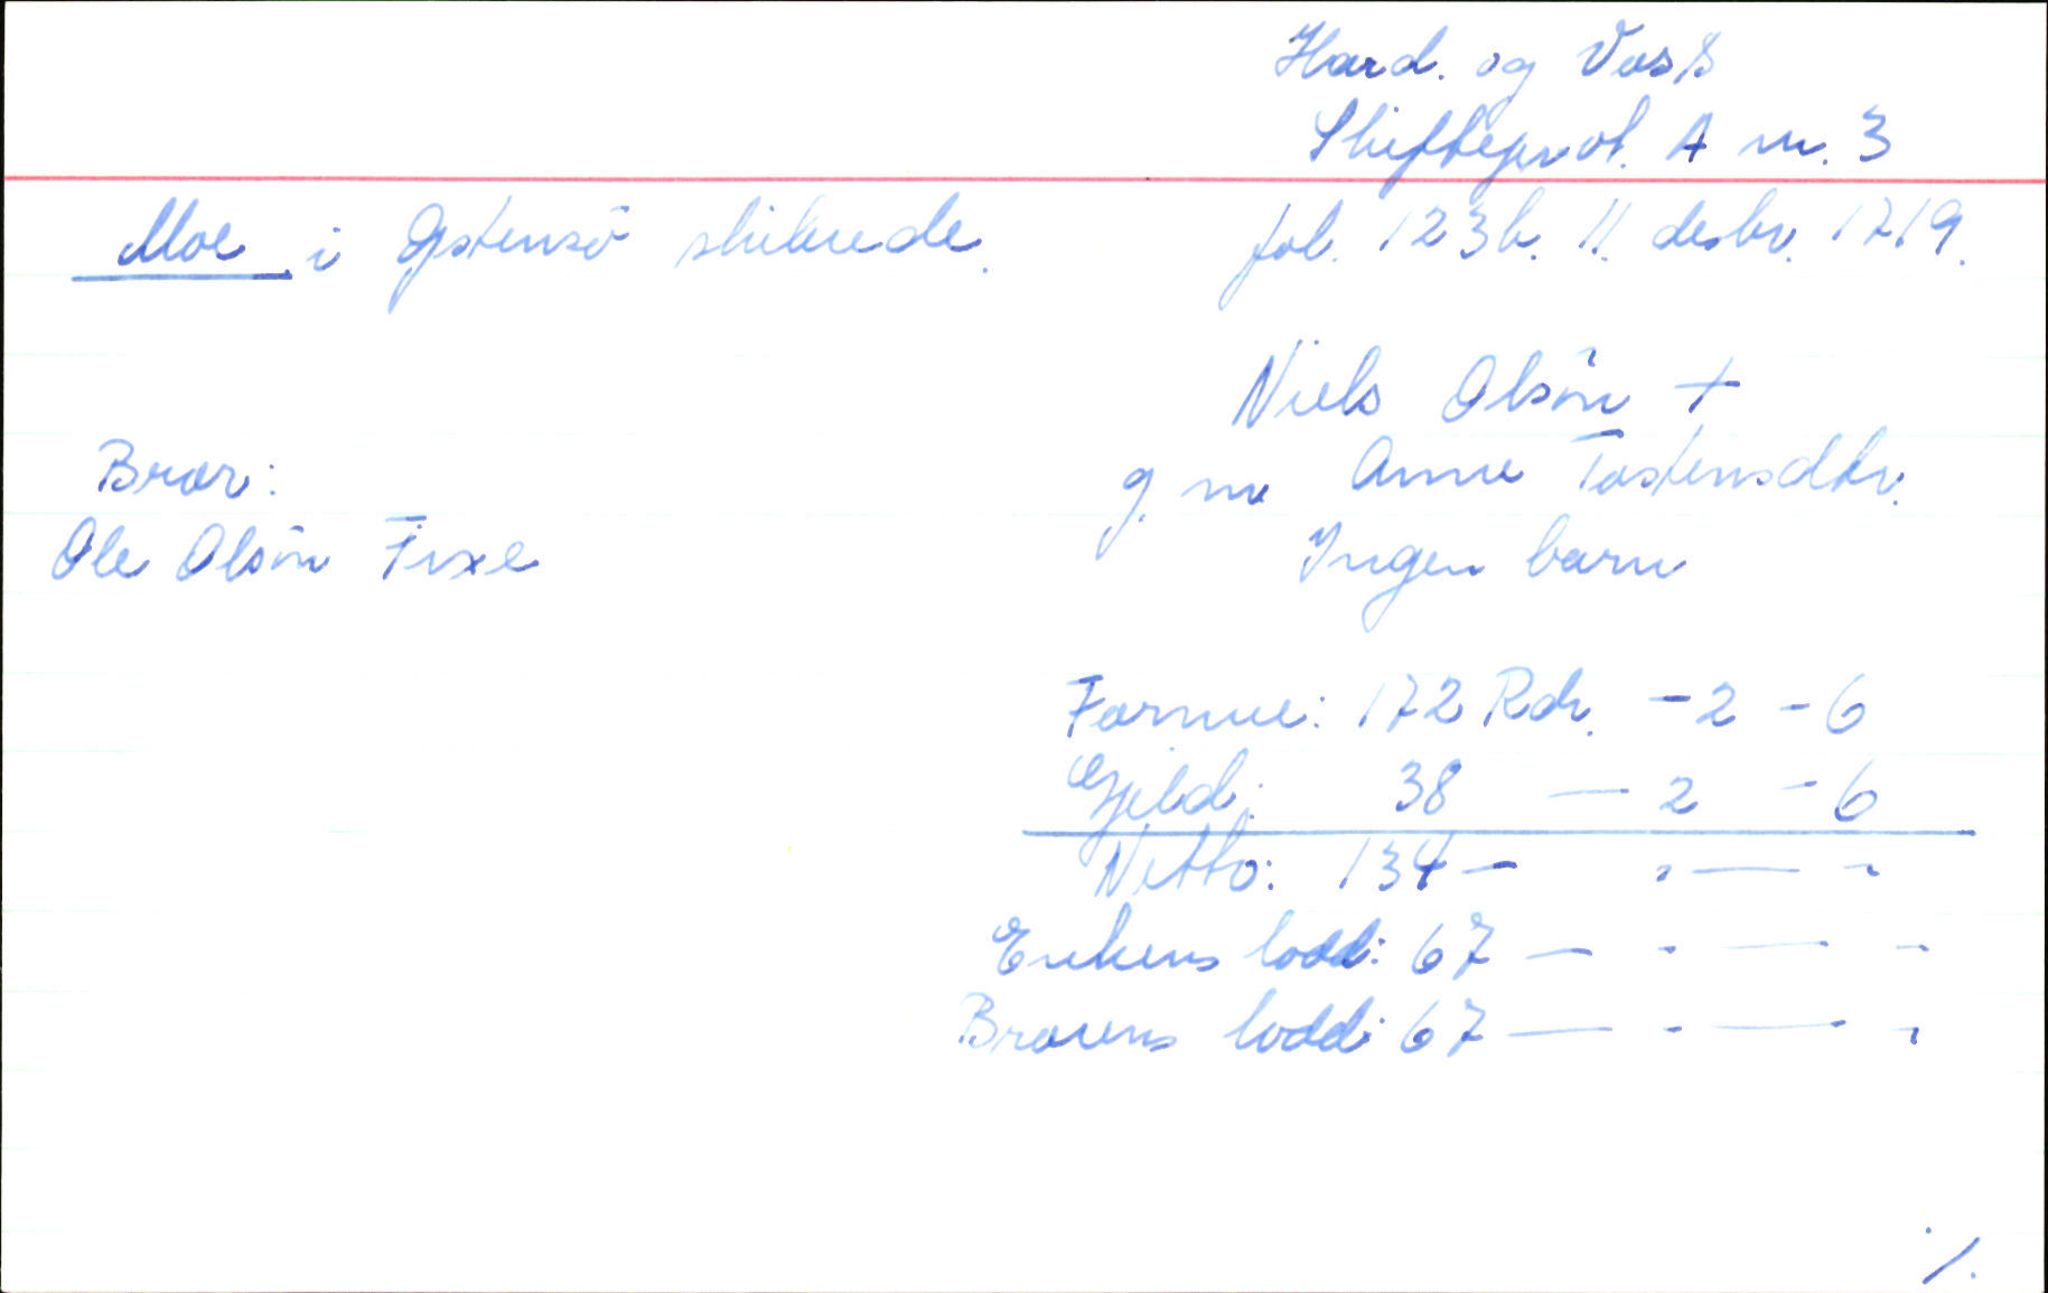 Hard. og Voss
Skifteprot. A nr. 3
Moe i Østensö skibrede. fol. 123b. 11. desbr. 1719.
Niels Olsön +
g. m. Anne Tostensdtr.
Ingen barn
Bror:
Ole Olsön Fixe
Formue: 172 Rdr. - 2 - 6
Gjeld: 38 — 2 - 6
Netto: 134 - " — "
Enkens lodd: 67 — " — "
Brorens lodd: 67 — " — "
./.